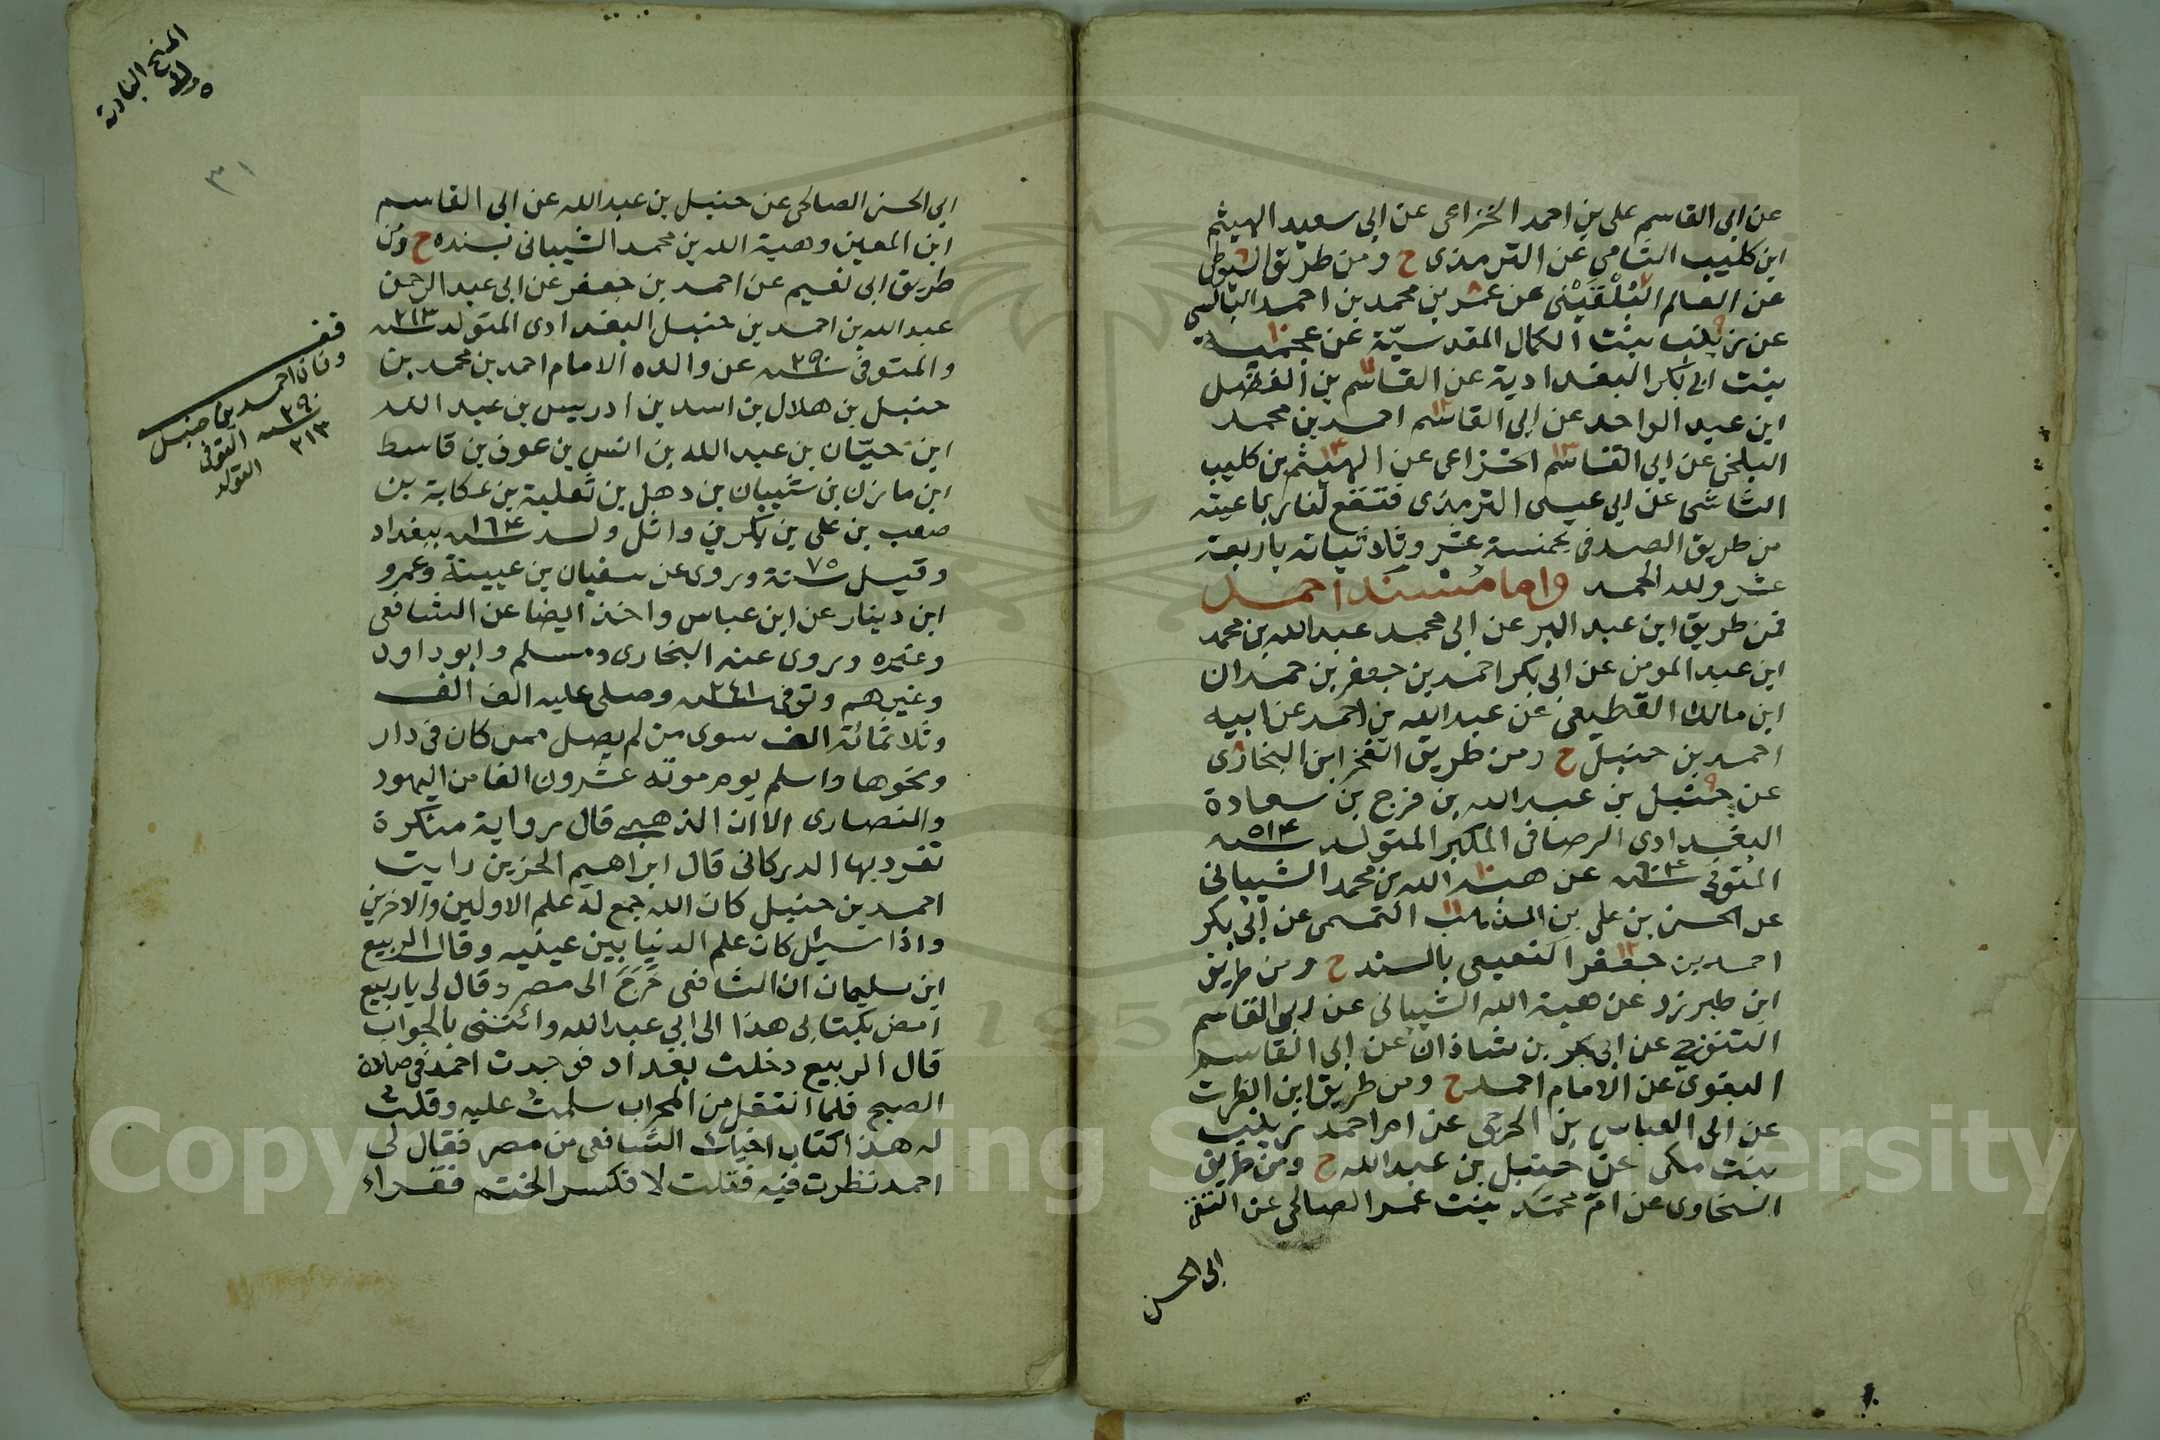 عن ابى القاسم على بن احمد الخزاعى عن ابى سعيد الهيثم
ابن كليب الشامي عن الترمذى ح ومن طريق السيوطى
عن العالم البلقينى عن عمر بن محمد بن احمد البالسي
عن زينب بنت الكمال المقدسيّة عن عجيبة
بنت ابى بكر البغدادية عن القاسم بن الفضل
ابن عبد الواحد عن ابى القاسم احمد بن محمد
البلخى عن ابى القاسم الخزاعى عن الهيثم بن كليب
الشاشى عن ابى عيسى الترمذى فتقع لنا رباعيته
من طريق الصدفى بخمسة عشر وثلاثياته باربعة
عشر ولله الحمد واما مُسْنَد احمد
فمن طريق ابن عبد البر عن ابى محمد عبد الله بن محمد
ابن عبد المومن عن ابى بكر احمد بن جعفر بن حمدان
ابن مالك القطيعى عن عبد الله بن احمد عن ابيه
احمد بن حنبل ح ومن طريق الفخر ابن البخارى
عن حنبل بن عبد الله بن فرج بن سعادة
البغدادى الرصافى المكبر المتولد سنة ٥١٤
المتوفى سنة ٦٠٤ عن هبة الله بن محمد الشيبانى
عن الحسن بن على بن المذهب التميمى عن ابى بكر
احمد بن جعفر القطيعى بالسند ح ومن طريق
ابن طبرزد عن هبة الله الشيبانى عن ابى القاسم
التنوخي عن ابى بكر بن شاذان عن ابى القاسم
البغوى عن الامام احمد ح ومن طريق ابن الفرات
عن ابى العباس بن الجوخى عن ام احمد زينب
بنت مكى عن حنبل بن عبد الله ح ومن طريق
السخاوى عن امّ محمد بنت عمر الصالحى عن
ابى الحسن
المنح البادية
٣١
ابى الحسن الصالحى عن حنبل بن عبد الله عن ابى القاسم
ابن المعين وهبة الله بن محمد الشيبانى بسنده ح ومن
طريق ابى نعيم عن احمد بن جعفر عن ابى عبد الرحمن
عبد الله بن احمد بن حنبل البغدادى المتولد سنة ٢١٣
والمتوفى سنة ٢٩٠ عن والده الامام احمد بن محمد بن
حنبل بن هلال بن اسد بن ادريس بن عبد الله
ابن حيّان بن عبد الله بن انس بن عوف بن قاسط
ابن مازن بن شيبان بن دهل بن ثعلبة بن عكابة بن
صعب بن على بن بكر بن وائل ولد سنة ١٦٤ ببغداد
وقيل سنة ٧٥ وروى عن سفيان بن عيينة وعمرو
ابن دينار عن ابن عباس واخذ ايضا عن الشافعى
وغيره وروى عنه البخارى ومسلم وابو داود
وغيرهم وتوفى سنة ٢٤١ وصلى عليه الف الف
وثلاثمائة الف سوى من لم يصل ممن كان فى دار
ونحوها واسلم يوم موته عشرون الفا من اليهود
والنصارى الا ان الذهبى قال رواية منكرة
تفرد بها الدبركانى قال ابراهيم الحزين رايت
احمد بن حنبل كان الله جمع له علم الاولين والاخرين
واذا سئل كان علم الدنيا بين عينيه وقال الربيع
ابن سليمان ان الشافعى خرج الى مصر وقال لى يا ربيع
امض بكتابى هذا الى ابى عبد الله وائتنى بالجواب
قال الربيع دخلت بغداد فوجدت احمد فى صلاة
الصبح فلما انتقل من المحراب سلمت عليه وقلت
له هذا كتاب اخيك الشافعى من مصر فقال لى
احمد نظرت فيه فقلت لا فكسر الختم فقراء
قف
احمد بن حنبل
٢٩٠ المتوفى
٢١٣ المتولد
Copyright © King Saud University
1957